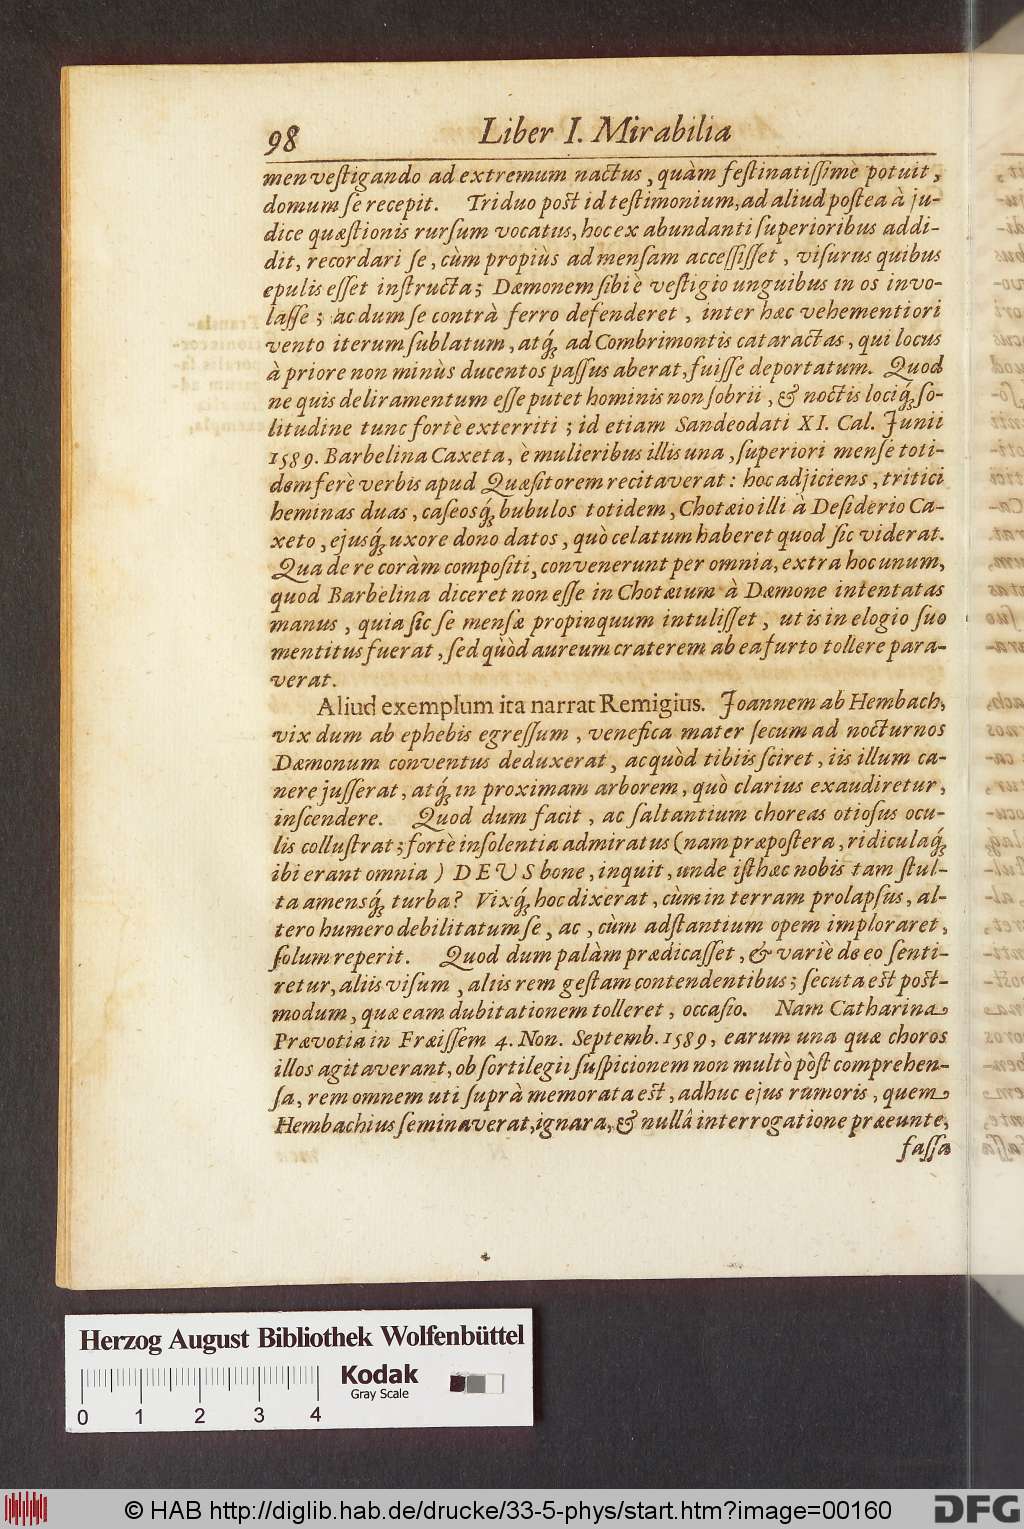 98 Liber I. Mirabilia
men veſtigando ad extremum nactus, quàm feſtinatiſſimè potuit,
domum ſe recepit. Triduo poſt id teſtimonium, ad aliud poſtea à ju-
dice quæſtionis rurſum vocatus, hoc ex abundanti ſuperioribus addi-
dit, recordari ſe, cùm propiùs ad menſam acceſſiſſet, viſurus quibus
epulis eſſet inſtructa; Dæmonem ſibi è veſtigio unguibus in os invo-
laſſe; ac dum ſe contrà ferro defenderet, inter hæc vehementiori
vento iterum ſublatum, atq́; ad Combrimontis cataractas, qui locus
à priore non minùs ducentos paſſus aberat, fuiſſe deportatum. Quod
ne quis deliramentum eſſe putet hominis non ſobrii, & noctis lociq́; ſo-
litudine tunc fortè exterriti; id etiam Sandeodati XI. Cal. Junii
1589. Barbelina Caxeta, è mulieribus illis una, ſuperiori menſe toti-
dem ferè verbis apud Quæſitorem recitaverat: hoc adjiciens, tritici
heminas duas, caſeosq́; bubulos totidem, Chotæio illi à Deſiderio Ca-
xeto, ejusq́; uxore dono datos, quò celatum haberet quod ſic viderat.
Qua de re coràm compoſiti, convenerunt per omnia, extra hoc unum,
quod Barbelina diceret non eſſe in Chotæium à Dæmone intentatas
manus, quia ſic ſe menſæ propinquum intuliſſet, ut is in elogio ſuo
mentitus fuerat, ſed quòd aureum craterem ab ea furto tollere para-
verat.
Aliud exemplum ita narrat Remigius. Joannem ab Hembach,
vix dum ab ephebis egreſſum, venefica mater ſecum ad nocturnos
Dæmonum conventus deduxerat, ac quòd tibiis ſciret, iis illum ca-
nere juſſerat, atq́; in proximam arborem, quò clarius exaudiretur,
inſcendere. Quod dum facit, ac ſaltantium choreas otioſus ocu-
lis colluſtrat; fortè inſolentia admiratus (nam præpoſtera, ridiculaq́;
ibi erant omnia) DEUS bone, inquit, unde iſthæc nobis tam ſtul-
ta amensq́; turba? Vixq́; hoc dixerat, cùm in terram prolapſus, al-
tero humero debilitatum ſe, ac, cùm adſtantium opem imploraret,
ſolum reperit. Quod dum palàm prædicaſſet, & variè de eo ſenti-
retur, aliis viſum, aliis rem geſtam contendentibus; ſecuta eſt poſt-
modum, quæ eam dubitationem tolleret, occaſio. Nam Catharina
Prævotia in Fræiſſem 4. Non. Septemb. 1589, earum una quæ choros
illos agitaverant, ob ſortilegii ſuſpicionem non multò pòſt comprehen-
ſa, rem omnem uti ſuprà memorata eſt, adhuc ejus rumoris, quem
Hembachius ſeminaverat, ignara, & nullâ interrogatione præeunte,
faſſa
Herzog August Bibliothek Wolfenbüttel
Kodak
Gray Scale
0 1 2 3 4
© HAB http://diglib.hab.de/drucke/33-5-phys/start.htm?image=00160
DFG